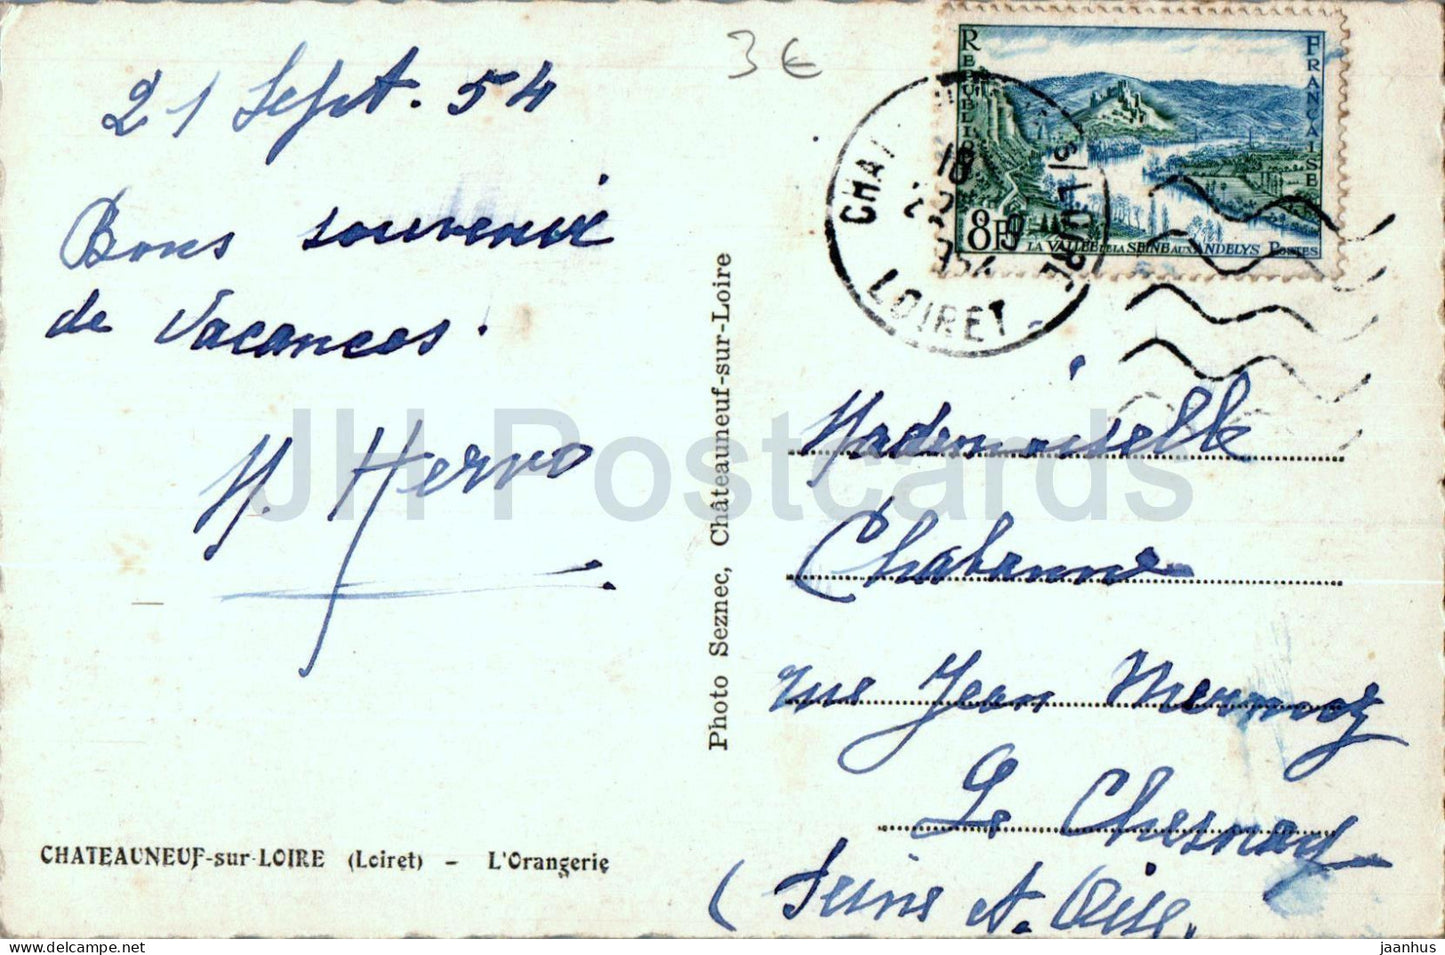 21 Sept. 54
Bons souvenir
de Vacances.
H. Hervo
CHATEAUNEUF-sur-LOIRE (Loiret) - L'Orangerie
Photo Seznec, Châteauneuf-sur-Loire
3€
REPUBLIQUE FRANÇAISE
8F
LA VALLEE DE LA SEINE AUX ANDELYS POSTES
CHAT
S/LOIRE
18
1954
LOIRET
Mademoiselle
Chabanne
rue Jean Mermoz
Le Chesnay
(Seine et Oise.
JH Postcards
jaanhus